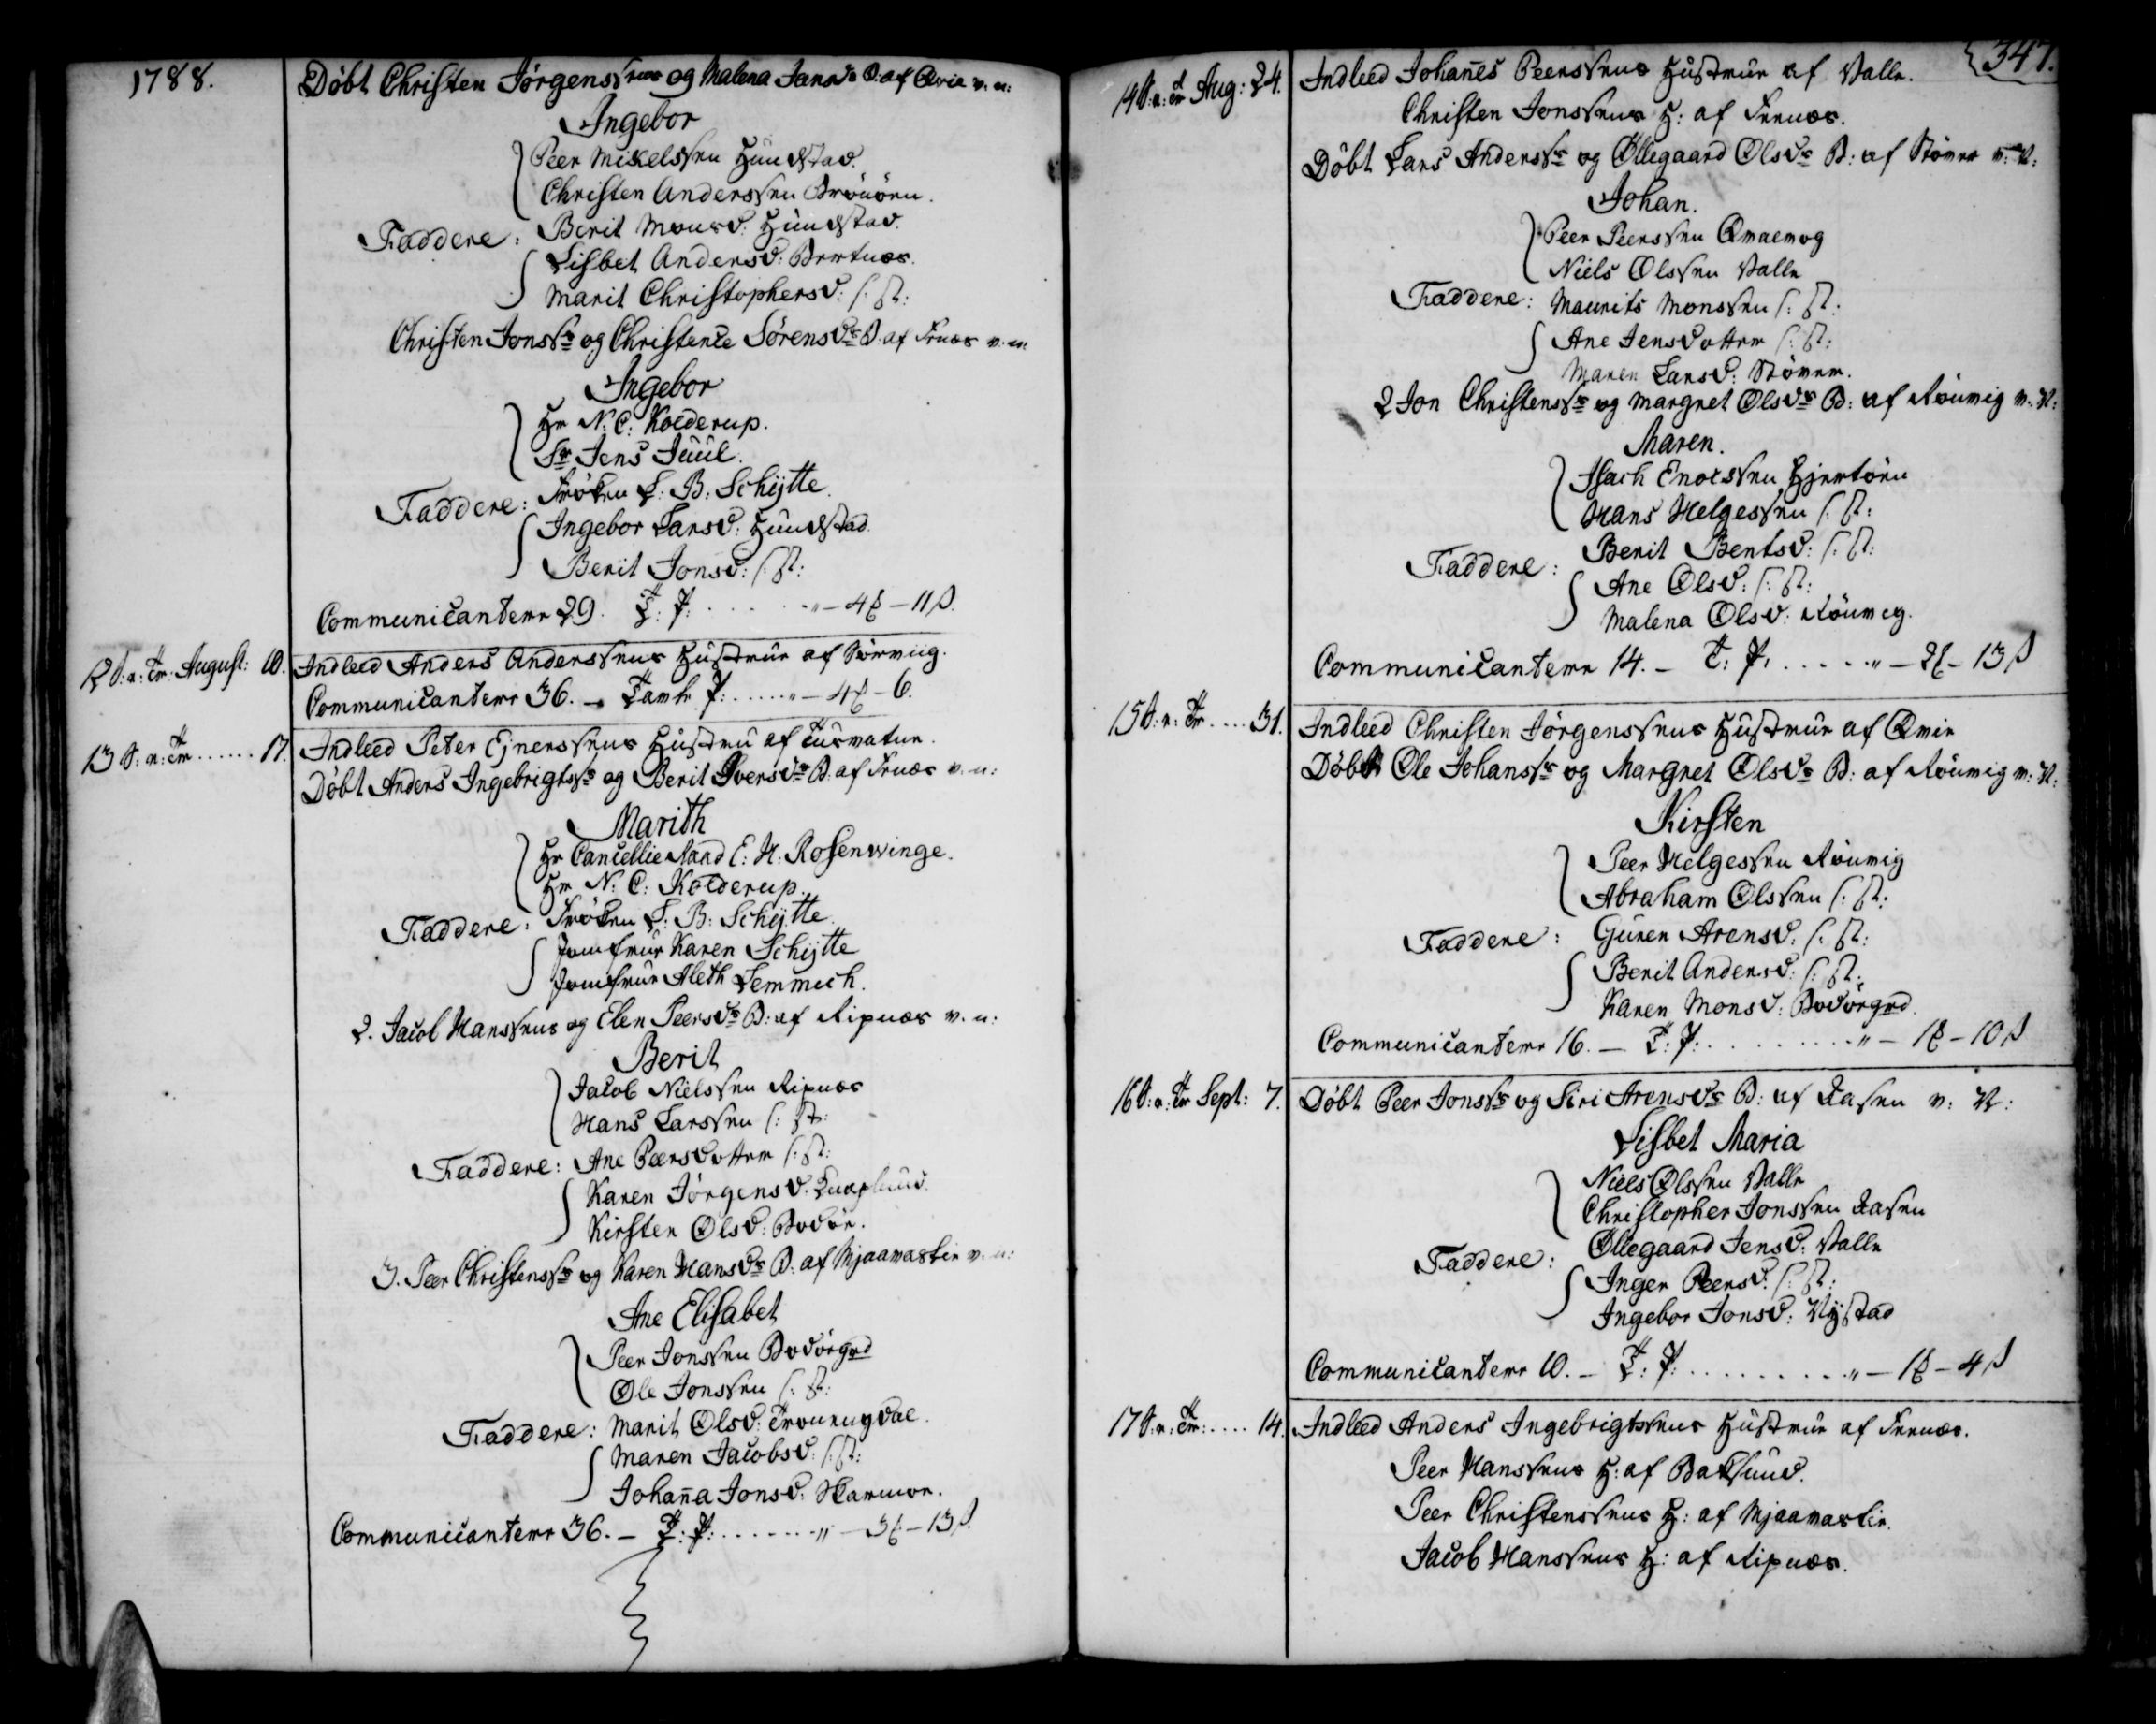 1788.
Döbt Christen Jörgenssens og Malena Jansdr B: af Qvie v. n:
Ingebor
Peer Mikelssen Hundstad.
Christen Anderssen Brönöen.
Faddere: Berit Monsd: Hundstad.
Lisbet Andersd: Bertnes.
Marit Christophersd: s: st:
Christen Jonssns og Christence Sörensdrs B. af Fenes v. n:
Ingebor
Hr N. C: Kolderup.
Sr Jens Juul.
Faddere: Fröken L: B: Schytte.
Ingebor Larsd: Hundstad.
Berit Jonsd: s: st:
Communicantere 29. T: P: . . . . . " - 4 ß - 11 ß.
12 S: n: Tr: August: 10. Indleed Anders Anderssens Hustrue af Sörviig.
Communicantere 36. - Tavle P: . . . . " - 4 - 6.
13 S: n: Tr . . . . . 17. Indleed Peter Ejnerssens Hustru af Tusvatne.
Döbt Anders Ingebrigtss og Berit Iversdr B: af Fenes v. n:
Marith
Hr Cancellie Raad E: H: Rosenvinge.
Hr N: C: Kolderup.
Faddere: Fröken L: B: Schytte.
Jomfrue Karen Schytte
Jomfrue Aleth Lemmich.
2. Jacob Hanssens og Elen Peersdr B: af Ripnes v. n:
Berit
Jacob Nielssen Ripnes
Hans Larssen s: st:
Faddere: Ane Peersdotter s: st:
Karen Jörgensd: Knaplund.
Kirsten Olsd: Bodöe.
3. Peer Christenss og Karen Hansdr B: af Mjaavaslie v. n:
Ane Elisabet
Peer Jonssen Bodörgrd
Ole Jonssen s: st:
Faddere: Marit Olsd:
Maren Jacobsd: s: st:
Johana Jonsd: Skarmoe.
Communicantere 36. - T: P: . . . . . . " - 3 - 13 ß.
347.
14 S: n: Tr Aug: 24. Indleed Johanes Peerssens Hustrue af Valle.
Christen Jonssens H: af Fenes.
Döbt Lars Anderss og Øllegaard Olsdr B: af Stövre v: N:
Johan.
Peer Peerssen
Niels Olssen Valle
Faddere: Maurits Monssen s: st:
Ane Jensdotter s: st:
Maren Larsd: Stövre.
2 Jon Christenss og Margret Olsdr B: af Rönvig v: N:
Maren.
Isach Enocssen Hjertöen
Hans Helgessen s: st:
Faddere: Berit Bentsd: s: st:
Ane Olsd: s: st:
Malena Olsd: Rönvig.
Communicantere 14. - T: P: . . . . . " - 2 - 13 ß
15 S: n: Tr . . . . 31. Indleed Christen Jörgenssens Hustrue af Qvie
Döbt Ole Johanss og Margret Olsdr B: af Rönvig v: N:
Kirsten
Peer Helgessen Rönvig
Abraham Olssen s: st:
Faddere: Guren Arensd: s: st:
Berit Andersd: s: st:
Karen Monsd: Bodörgrd.
Communicantere 16. - T: P: . . . . . . . . " - 1 - 10 ß
16 S: n: Tr Sept: 7. Döbt Peer Jonss og Siri Arensdr B: af Aasen v: N:
Lisbet Maria
Niels Olssen Valle
Christopher Jonssen Aasen
Faddere: Øllegaard Jensd: Valle
Inger Peersd: s: st:
Ingebor Jonsd: Nystad
Communicantere 10. - T: P: . . . . . . . . . " - 1 - 4 ß
17 S: n: Tr: . . . . 14. Indleed Anders Ingebrigtssens Hustrue af Fenes.
Peer Hanssens H: af Baksund.
Peer Christenssens H: af Mjaavaslie.
Jacob Hanssens H: af Ripnes.